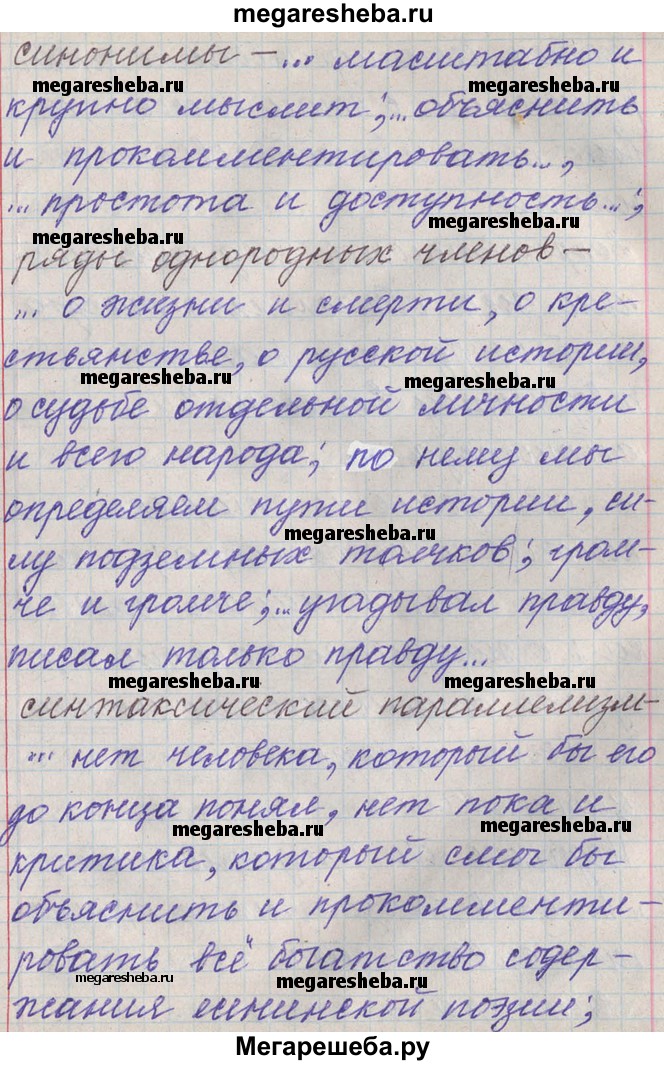 megaresheba.ru
синонимы –... масштабно и
megaresheba.ru megaresheba.ru
крупно мыслит; ... объяснить
и прокомментировать...,
... простота и доступность...;
megaresheba.ru megaresheba.ru
ряды однородных членов –
... о жизни и смерти, о кре-
стьянстве, о русской истории,
megaresheba.ru megaresheba.ru
о судьбе отдельной личности
и всего народа; по нему мы
определяем пути истории, си-
megaresheba.ru
лу подземных толчков; гром-
megaresheba.ru
че и громче; ... угадывал правду,
писал только правду...
megaresheba.ru megaresheba.ru
синтаксический параллелизм-
... нет человека, который бы его
до конца понял, нет пока и
megaresheba.ru megaresheba.ru
критика, который смог бы
объяснить и прокомменти-
ровать всё богатство содер-
megaresheba.ru megaresheba.ru
жания поэзии;
Мегарешеба.ру